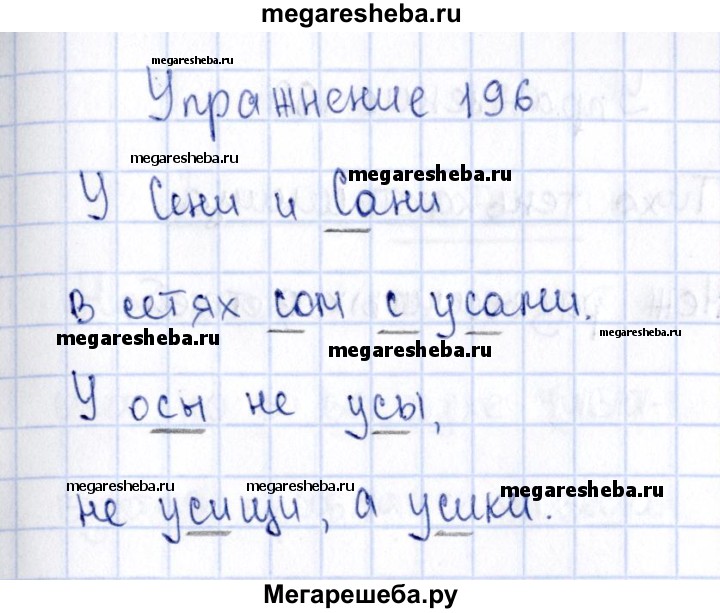 megaresheba.ru
megaresheba.ru
Упражнение 196
megaresheba.ru
megaresheba.ru
У Сени и Сани
в сетях сом с усами.
megaresheba.ru
megaresheba.ru
megaresheba.ru
У осы не усы,
megaresheba.ru
megaresheba.ru
megaresheba.ru
не усищи, а усики.
Мегарешеба.ру